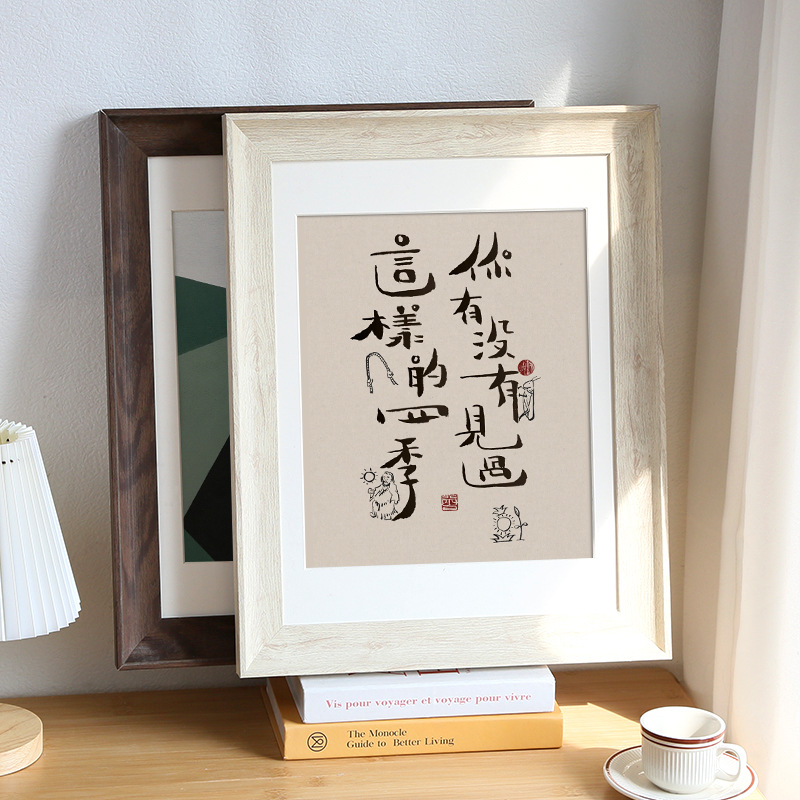 你有没有見過
這樣的四季
Vis pour voyager et voyage pour vivre
The Monocle
Guide to Better Living